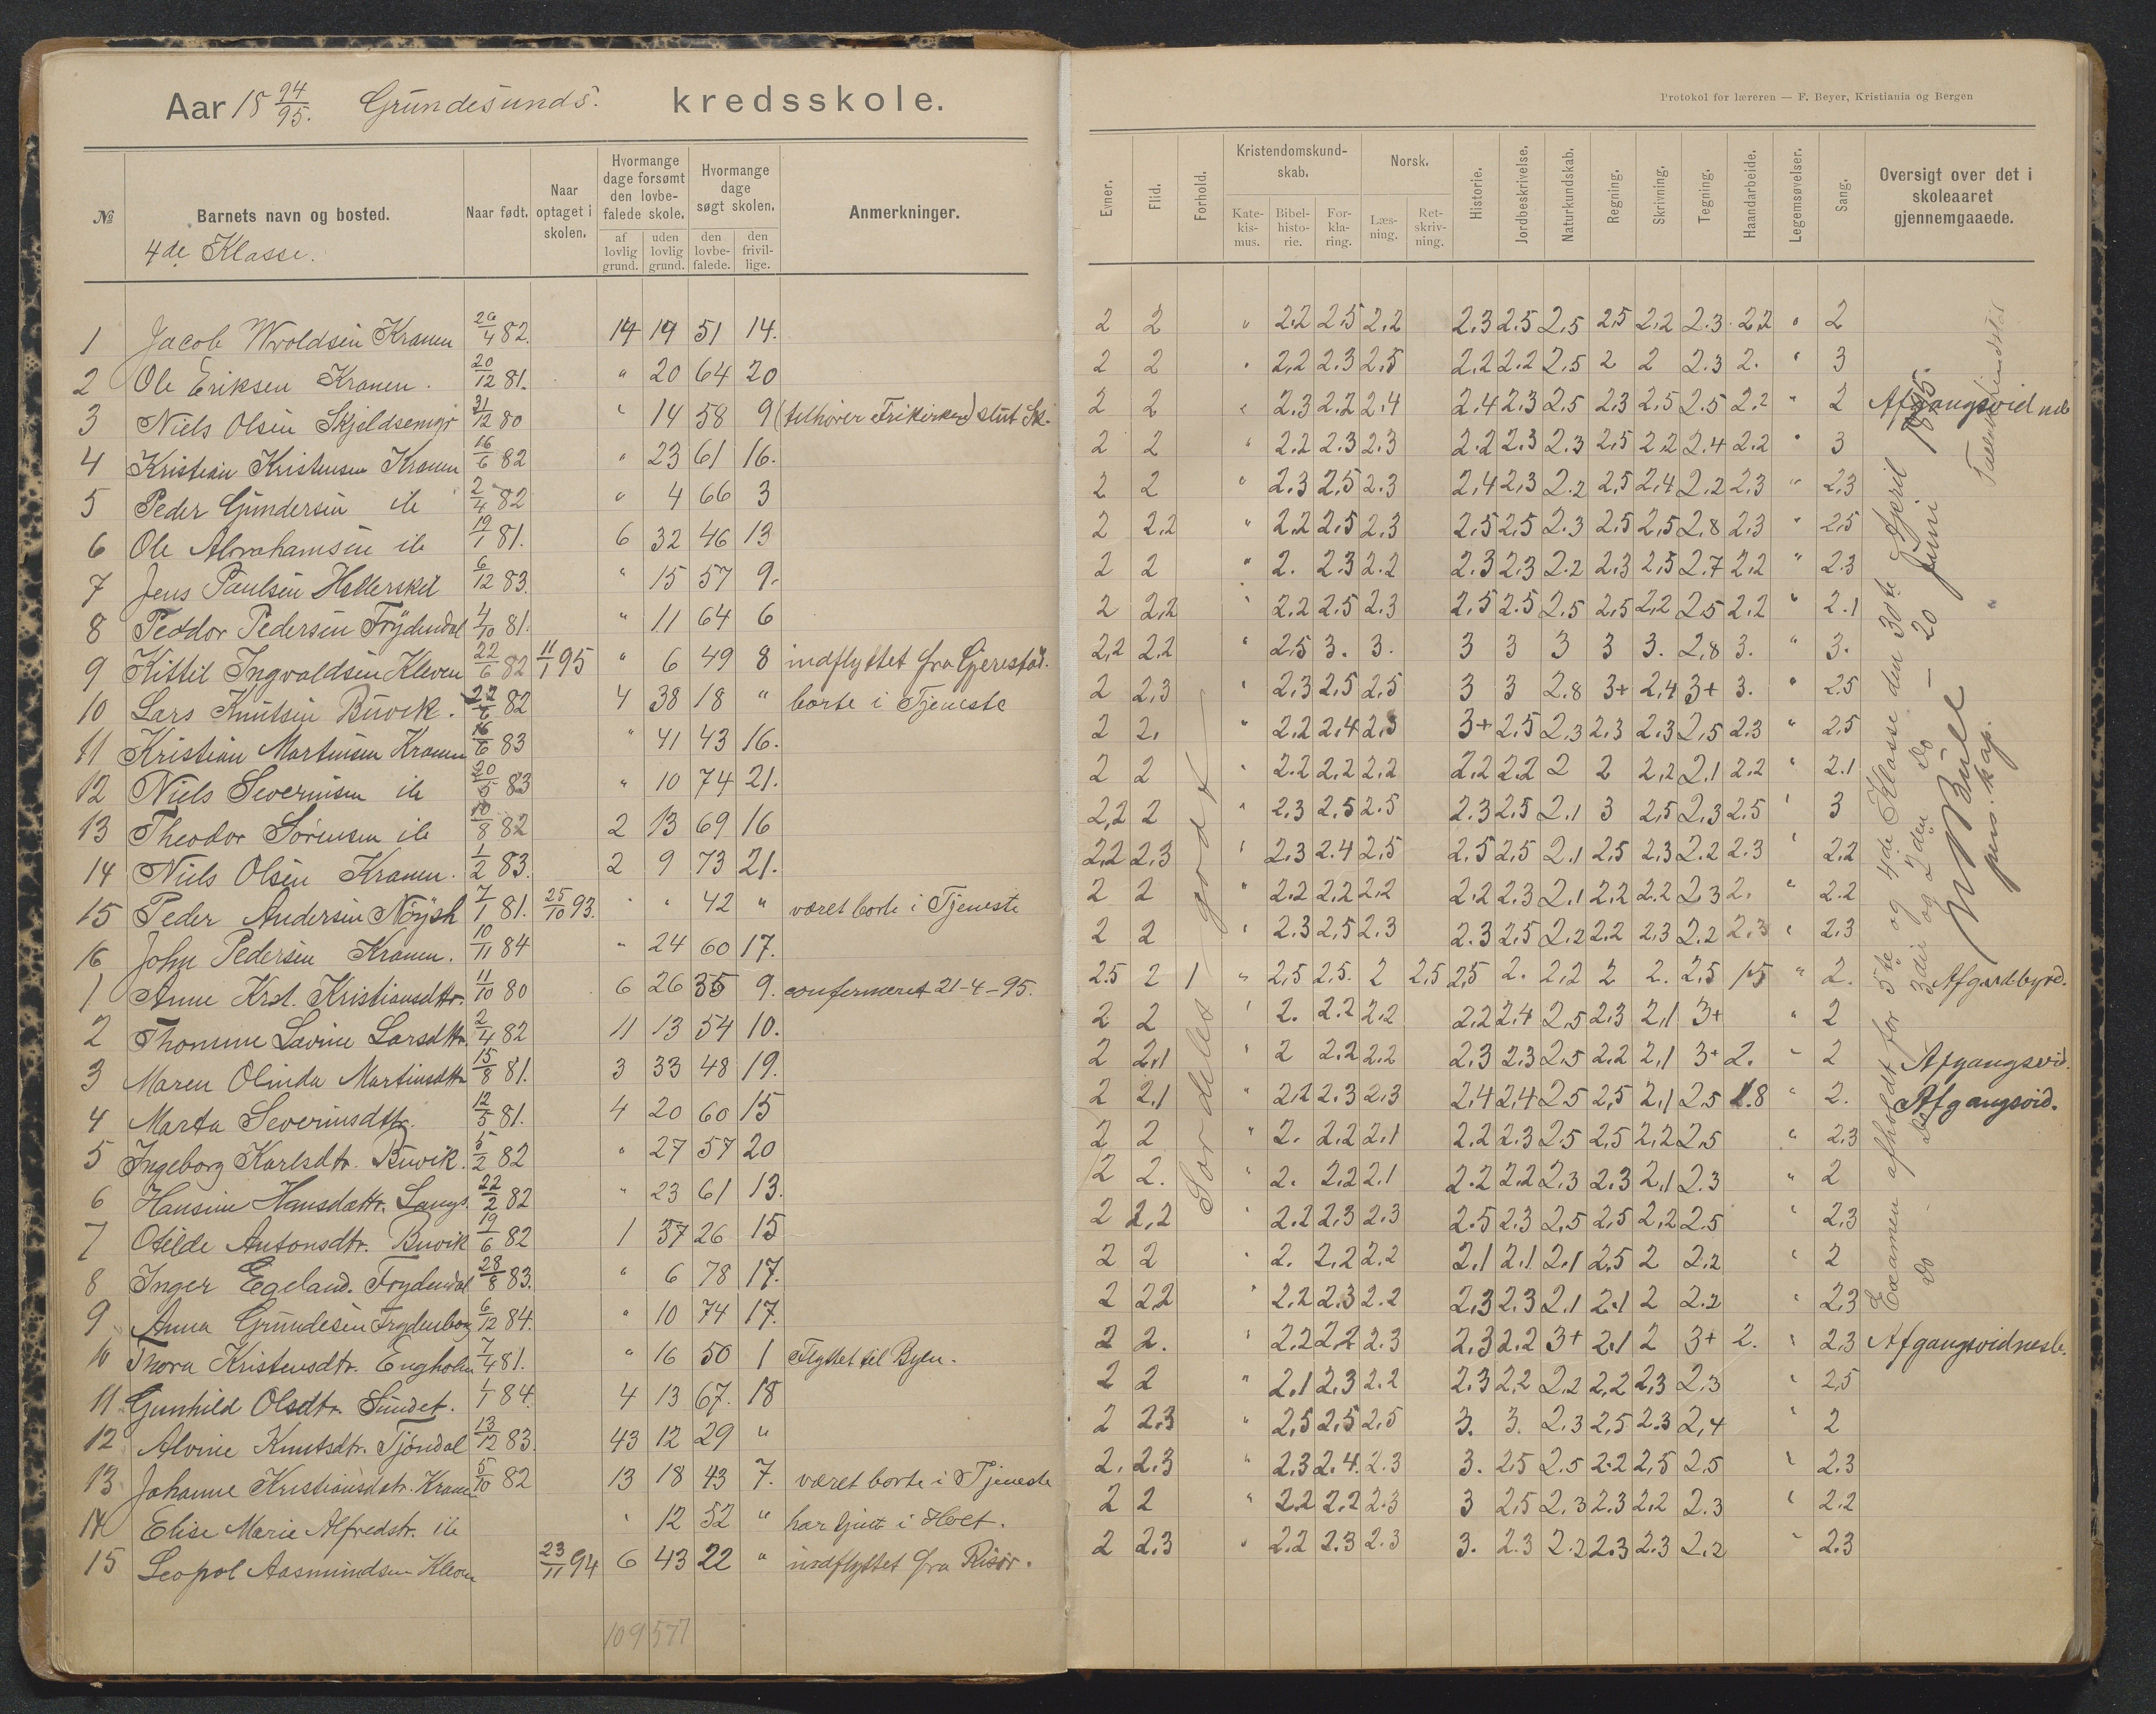 Aar 18 94/95. Grundesunds. kredsskole.
№ Barnets navn og bosted. Naar født. Naar optaget i skolen. Hvormange dage forsømt den lovbefalede skole. af lovlig grund. uden lovlig grund. Hvormange dage søgt skolen. den lovbefalede. den frivillige. Anmerkninger.
4de Klasse.
1 Jacob Kranen 26/4 82. 14 19 51 14.
2 Ole Eriksen Kranen. 20/12 81. " 20 64 20
3 Niels Olsen 31/12 80 " 14 58 9 (tilhører Frikirken) slut Sk.
4 Kristian Kristensen Kranen 16/6 82 " 23 61 16.
5 Peder Gundersen ib 2/4 82 " 4 66 3
6 Ole Abrahamsen ib 19/1 81. 6 32 46 13
7 Jens Paulsen 6/12 83. " 15 57 9.
8 Peddor Pedersen Frydendal 4/10 81. " 11 64 6
9 Kittil Ingvaldsen Kleven 22/6 82 11/1 95 " 6 49 8 indflyttet fra Gjerestad.
10 Lars Knutsen Buvik. 22/6 82 4 38 18 " borte i Tjeneste
11 Kristian Martinsen Kranen 16/6 83 " 41 43 16.
12 Niels Severinsen ib 20/5 83 " 10 74 21.
13 Theodor Sørensen ib 10/8 82 2 13 69 16
14 Niels Olsen Kranen. 1/2 83. 2 9 73 21.
15 Peder Andersen 7/1 81. 25/10 93. " " 42 " været borte i Tjeneste
16 John Pedersen Kranen. 10/11 84 " 24 60 17.
1 Anne Krst. Kristiansdtr. 11/10 80 6 26 35 9. confermeret 21-4-95.
2 Thomine Lavine Larsdttr. 2/4 82 11 13 54 10.
3 Maren Olinda Martinsdttr 15/8 81. 3 33 48 19.
4 Marta Severinsdttr. 12/5 81. 4 20 60 15
5 Ingeborg Karlsdtr. Buvik. 5/2 82 " 27 57 20
6 Hansine Hansdattr. Langs. 22/2 82 " 23 61 13.
7 Otilde Antonsdtr. Buvik 19/6 82 1 37 26 15
8 Inger Egeland. Frydendal 28/8 83. " 6 78 17.
9 Anna Grundesen Frydenborg 6/12 84. " 10 74 17.
10 Thora Kristensdtr. Engholm 7/4 81. " 16 50 1 Flyttet til Byen.
11 Gunhild Olsdtr. Sundet. 1/1 84. 4 13 67. 18
12 Alvine Knutsdtr. Tjöndal 13/12 83. 43 12 29 "
13 Johanne Kristiansdatr. Kranen 5/10 82 13 18 43 7. været borte i Tjeneste
14 Elise Marie Alfredstr. ib " 12 52 " har tjent i Holt.
15 Leopol Aasmundsen Kleven 23/11 94 6 43 22 " indflyttet fra Risör.
109 577
Protokol for læreren — F. Beyer, Kristiania og Bergen
Evner. Flid. Forhold. Kristendomskundskab. Katekismus. Bibelhistorie. Forklaring. Norsk. Læsning. Retskrivning. Historie. Jordbeskrivelse. Naturkundskab. Regning. Skrivning. Tegning. Haandarbeide. Legemsøvelser. Sang. Oversigt over det i skoleaaret gjennemgaaede.
2 2 " 2.2 2.5 2.2 2.3 2.5 2.5 2.5 2.2 2.3 2.2 " 2
2 2 " 2.2 2.3 2.5 2.2 2.2 2.5 2 2 2.3 2. " 3
2 2 " 2.3 2.2 2.4 2.4 2.3 2.5 2.3 2.5 2.5 2.2 " 2 Afgangsvidneb
2 2 " 2.2 2.3 2.3 2.2 2.3 2.3 2.5 2.2 2.4 2.2 " 3
2 2 " 2.3 2.5 2.3 2.4 2.3 2.2 2.5 2.4 2.2 2.3 " 2.3
2 2.2 " 2.2 2.5 2.3 2.5 2.5 2.3 2.5 2.5 2.8 2.3 " 2.5
2 2 " 2. 2.3 2.2 2.3 2.3 2.2 2.3 2.5 2.7 2.2 " 2.3
2 2.2 " 2.2 2.5 2.3 2.5 2.5 2.5 2.5 2.2 2.5 2.2 " 2.1
2.2 2.2 " 2.5 3. 3. 3 3 3 3 3. 2.8 3. " 3.
2 2.3 " 2.3 2.5 2.5 3 3 2.8 3+ 2.4 3+ 3. " 2.5
2 2. " 2.2 2.4 2.3 3+ 2.5 2.3 2.3 2.3 2.5 2.3 " 2.5
2 2 " 2.2 2.2 2.2 2.2 2.2 2 2 2.2 2.1 2.2 " 2.1
2.2 2 " 2.3 2.5 2.5 2.3 2.5 2.1 3 2.5 2.3 2.5 " 3
2.2 2.3 " 2.3 2.4 2.5 2.5 2.5 2.1 2.5 2.3 2.2 2.3 " 2.2
2 2 " 2.2 2.2 2.2 2.2 2.3 2.1 2.2 2.2 2.3 2. " 2.2
2 2 " 2.3 2.5 2.3 2.3 2.5 2.2 2.2 2.3 2.2 2.3 " 2.3
2.5 2 1 " 2.5 2.5. 2 2.5 2.5 2. 2.2 2 2. 2.5 1.5 " 2.
2 2 " 2. 2.2 2.2 2.2 2.4 2.5 2.3 2.1 3+ " 2
2 2.1 " 2 2.2 2.2 2.3 2.3 2.5 2.2 2.1 3+ 2. " 2 Afgangsvid.
2 2.1 " 2.2 2.3 2.3 2.4 2.4 2.5 2.5 2.1 2.5 1.8 " 2. Afgangsvid.
2 2 " 2. 2.2 2.1 2.2 2.3 2.5 2.5 2.2 2.5 " 2.3
2 2. " 2. 2.2 2.1 2.2 2.2 2.3 2.3 2.1 2.3 " 2
2 2.2 " 2.2 2.3 2.3 2.5 2.3 2.5 2.5 2.2 2.5 " 2.3
2 2 " 2. 2.2 2.2 2.1 2.1 2.1 2.5 2 2.2 " 2
2 2.2 " 2.2 2.3 2.2 2.3 2.3 2.1 2.1 2 2.2 " 2.3
2 2. " 2.2 2.2 2.3 2.3 2.2 3+ 2.1 2 3+ 2. " 2.3 Afgangsvidnesb.
2 2 " 2.1 2.3 2.2 2.3 2.2 2.2 2.2 2.3 2.3 " 2.5
2 2.3 " 2.5 2.5 2.5 3. 3. 2.3 2.5 2.3 2.4 " 2
2. 2.3 " 2.3 2.4. 2.3 3. 2.5 2.5 2.2 2.5 2.5 " 2.3
2 2 " 2.2 2.2 2.3 3 2.5 2.3 2.3 2.2 2.3 " 2.2
2 2.3 " 2.2 2.3 2.3 3. 2.3 2.2 2.3 2.3 2.2 " 2.3
Særdeles godt
Examen afholdt for 5te og 4de Klasse den 30te April 1895.
Do Do 3die og 2den Do — 20 Juni
pers. kap.